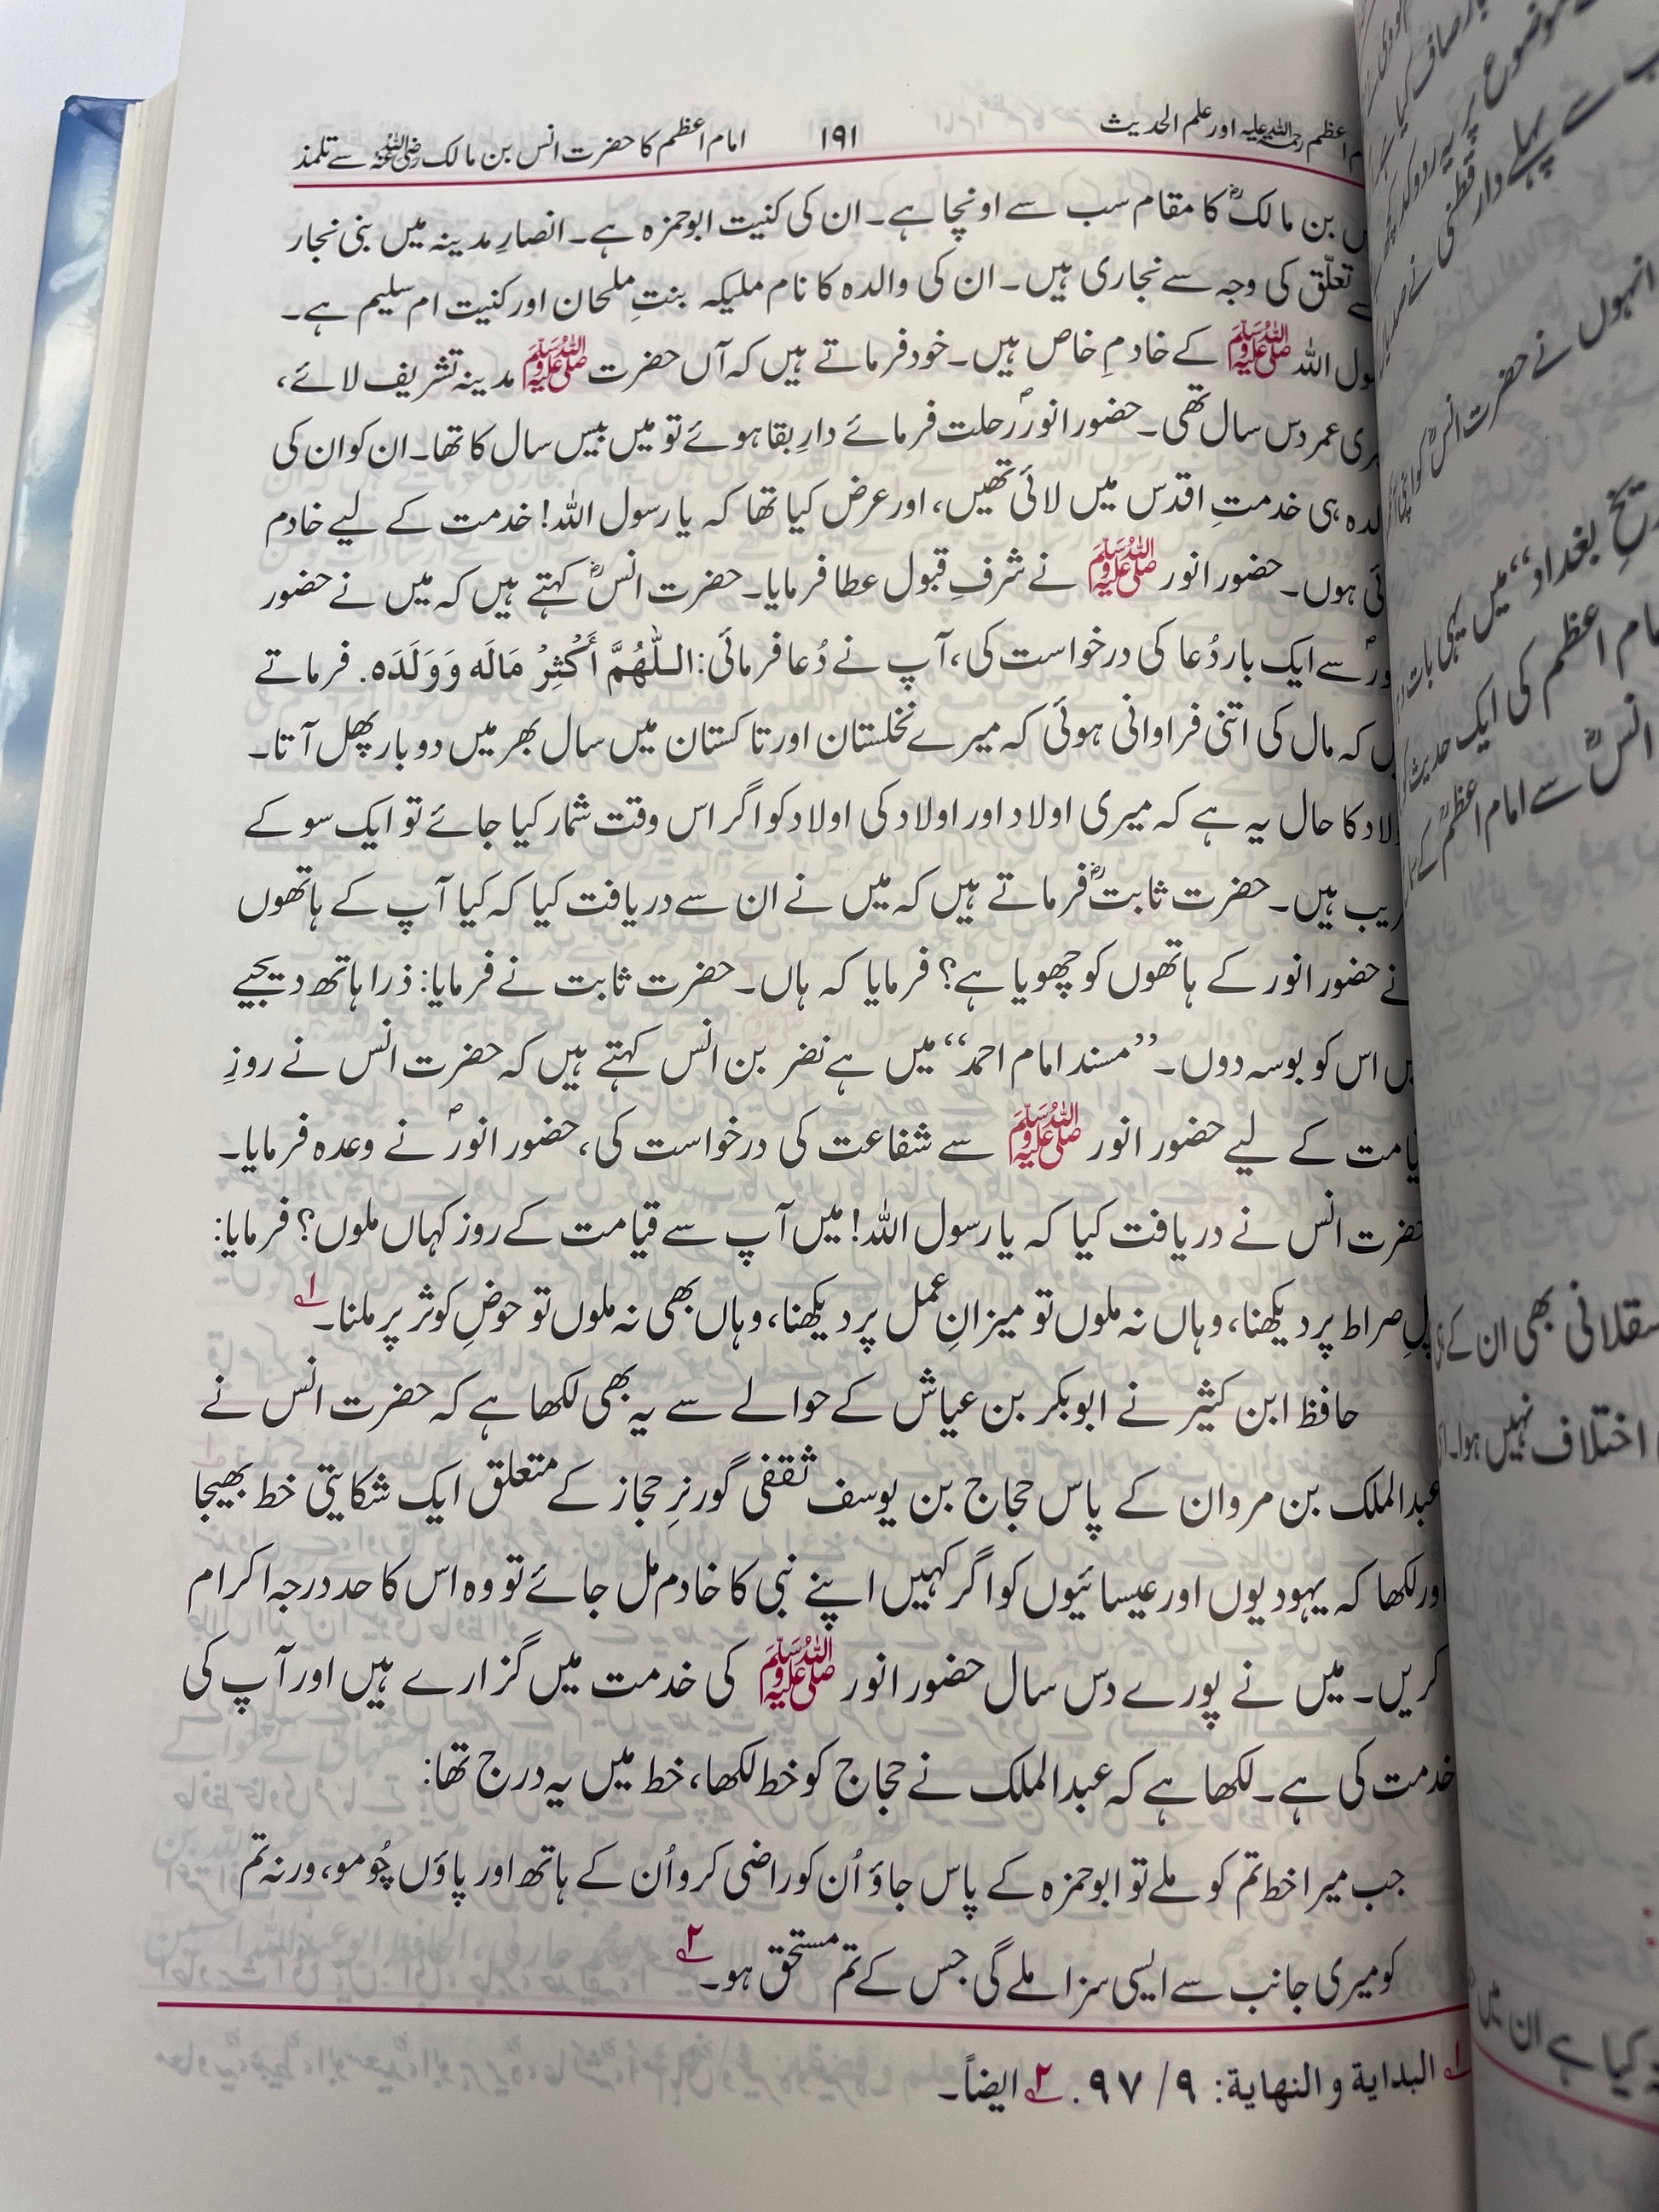 اعظم رحمۃ اللہ علیہ اور علم الحدیث ۱۹۱ امام اعظم کا حضرت انس بن مالک رضی اللہ عنہ سے تلمذ
بن مالکؓ کا مقام سب سے اونچا ہے۔ ان کی کنیت ابوحمزہ ہے۔ انصارِ مدینہ میں بنی نجار
تعلّق کی وجہ سے نجاری ہیں۔ ان کی والدہ کا نام ملیکہ بنتِ ملحان اور کنیت ام سلیم ہے۔
اللہ ﷺ کے خادمِ خاص ہیں۔ خود فرماتے ہیں کہ آں حضرت ﷺ مدینہ تشریف لائے،
عمر دس سال تھی۔ حضور انورؐ رحلت فرمائے دارِ بقا ہوئے تو میں بیس سال کا تھا۔ ان کو ان کی
ہی خدمتِ اقدس میں لائی تھیں، اور عرض کیا تھا کہ یا رسول اللہ! خدمت کے لیے خادم
ہوں۔ حضور انور ﷺ نے شرفِ قبول عطا فرمایا۔ حضرت انسؓ کہتے ہیں کہ میں نے حضور
سے ایک بار دُعا کی درخواست کی، آپ نے دُعا فرمائی: اللّٰهُمَّ أَكْثِرْ مَالَه وَوَلَدَه. فرماتے
کہ مال کی اتنی فراوانی ہوئی کہ میرے نخلستان اور تاکستان میں سال بھر میں دو بار پھل آتا۔
کا حال یہ ہے کہ میری اولاد اور اولاد کی اولاد کو اگر اس وقت شمار کیا جائے تو ایک سو کے
ہیں۔ حضرت ثابتؒ فرماتے ہیں کہ میں نے ان سے دریافت کیا کہ کیا آپ کے ہاتھوں
نے حضور انور کے ہاتھوں کو چھویا ہے؟ فرمایا کہ ہاں۔ حضرت ثابت نے فرمایا: ذرا ہاتھ دیجیے
اس کو بوسہ دوں۔ ’’مسند امام احمد‘‘ میں ہے نضر بن انس کہتے ہیں کہ حضرت انس نے روزِ
کے لیے حضور انور ﷺ سے شفاعت کی درخواست کی، حضور انورؐ نے وعدہ فرمایا۔
حضرت انس نے دریافت کیا کہ یا رسول اللہ! میں آپ سے قیامت کے روز کہاں ملوں؟ فرمایا:
صراط پر دیکھنا، وہاں نہ ملوں تو میزانِ عمل پر دیکھنا، وہاں بھی نہ ملوں تو حوضِ کوثر پر ملنا۔ ۱
حافظ ابن کثیرؒ نے ابوبکر بن عیاش کے حوالے سے یہ بھی لکھا ہے کہ حضرت انس نے
عبدالملک بن مروان کے پاس حجاج بن یوسف ثقفی گورنرِ حجاز کے متعلق ایک شکایتی خط بھیجا
اور لکھا کہ یہودیوں اور عیسائیوں کو اگر کہیں اپنے نبی کا خادم مل جائے تو وہ اس کا حد درجہ اکرام
کریں۔ میں نے پورے دس سال حضور انور ﷺ کی خدمت میں گزارے ہیں اور آپ کی
خدمت کی ہے۔ لکھا ہے کہ عبدالملک نے حجاج کو خط لکھا، خط میں یہ درج تھا:
جب میرا خط تم کو ملے تو ابوحمزہ کے پاس جاؤ اُن کو راضی کرو اُن کے ہاتھ اور پاؤں چُومو، ورنہ تم
کو میری جانب سے ایسی سزا ملے گی جس کے تم مستحق ہو۔ ۲
۱ البداية و النهاية: ۹/ ۹۷. ۲ ایضاً۔
موضوع پر یہ
سے پہلے دار قطنی نے
انہوں نے حضرت انسؓ کو
بغداد‘‘ میں یہی بات
امام اعظم کی ایک حدیث
انسؓ سے امام اعظمؒ کے
بھی ان کے
اختلاف نہیں ہوا۔
کیا ہے ان میں